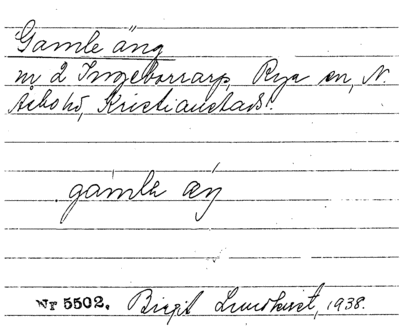 Gamle äng
nr 2 Ingeborrarp, Rya sn, N.
Åsbo hd, Kristianstads l.
gamla æŋ
Nr 5502. Birgit Lundkvist, 1938.